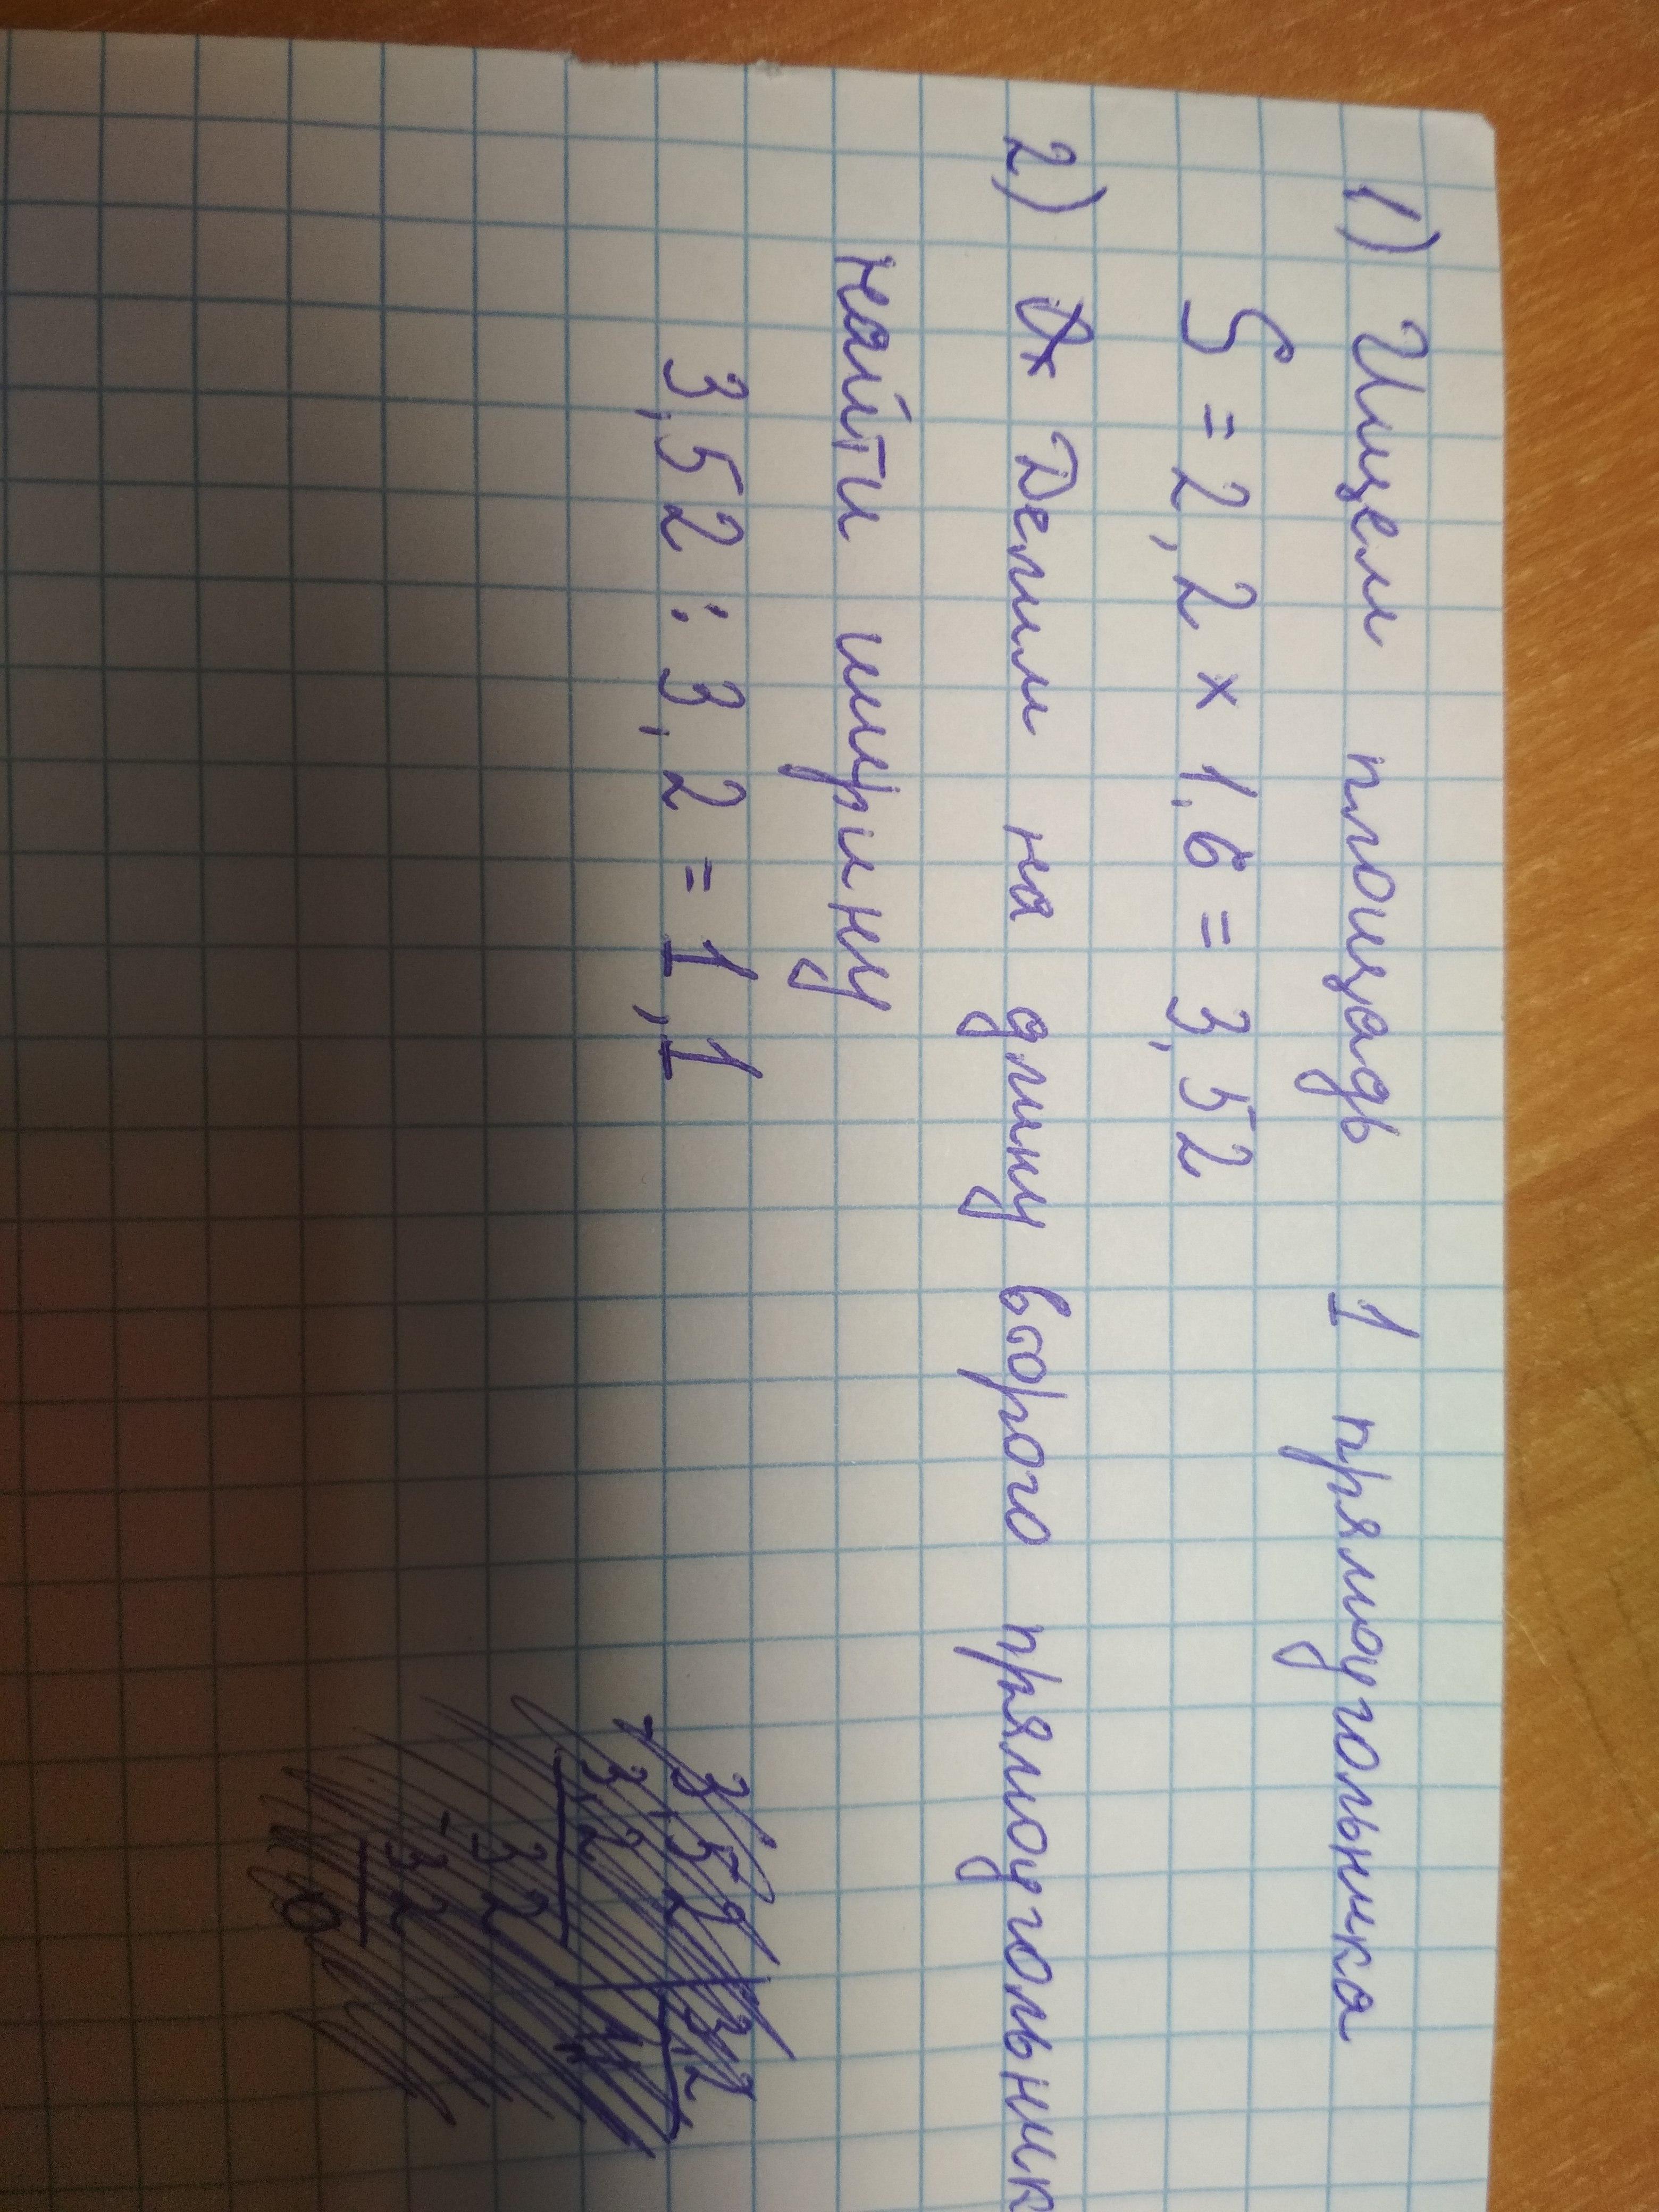 1) Ищем площадь 1 прямоугольника
S = 2,2 × 1,6 = 3,52
2) Делим на длину второго прямоугольник
найти ширину
3,52 : 3,2 = 1,1
3,52 3,2
3,2
- 32
32
0